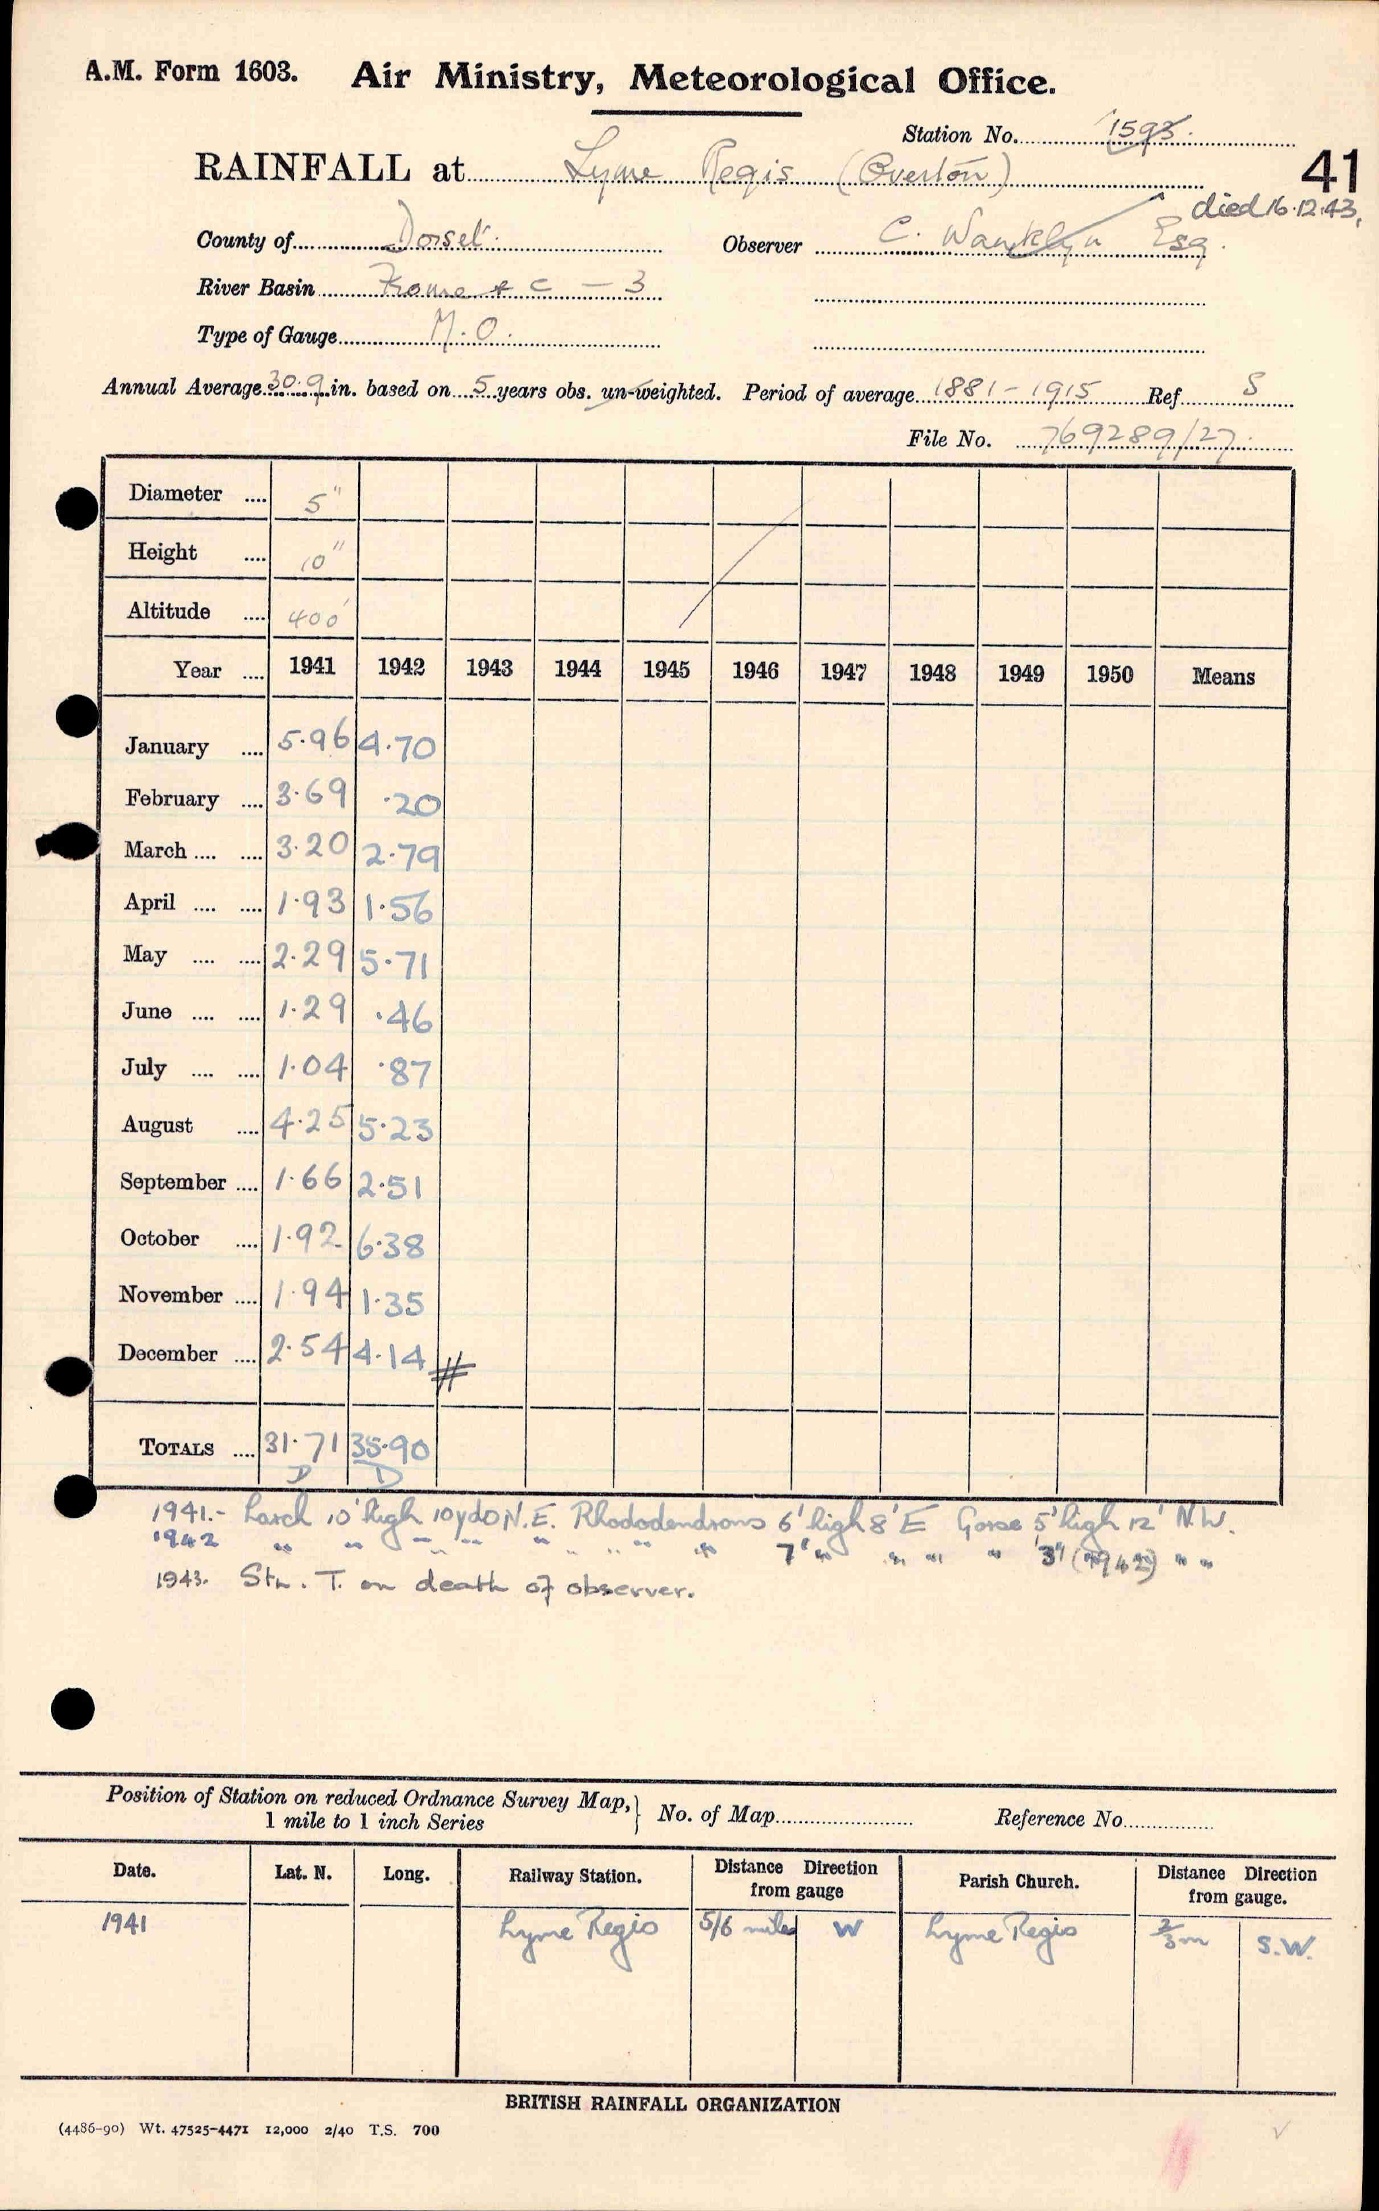 A.M. Form 1603. Air Ministry, Meteorological Office.
Station No. 1593.
RAINFALL at Lyme Regis (Overton)
41
died 16.12.43.
County of Dorset. Observer C. Wanklyn Esq.
River Basin Frome & C — 3
Type of Gauge M.O.
Annual Average 30.9 in. based on 5 years obs. un-weighted. Period of average 1881-1915 Ref S
File No. 769289/27.
Diameter .... 5"
Height .... 10"
Altitude .... 400'
Year .... 1941 1942 1943 1944 1945 1946 1947 1948 1949 1950 Means
January .... 5.96 4.70
February .... 3.69 .20
March .... .... 3.20 2.79
April .... .... 1.93 1.56
May .... .... 2.29 5.71
June .... .... 1.29 .46
July .... .... 1.04 .87
August .... 4.25 5.23
September .... 1.66 2.51
October .... 1.92 6.38
November .... 1.94 1.35
December .... 2.54 4.14 #
TOTALS .... 31.71 35.90
D D
1941.- Larch 10' high 10yds N.E. Rhododendrons 6' high 8' E Gorse 5' high 12' N.W.
1942 " " " " " " " " " 7' " " " " 3' (1942) " "
1943. Stn. T. on death of observer.
Position of Station on reduced Ordnance Survey Map, 1 mile to 1 inch Series } No. of Map Reference No.
Date. Lat. N. Long. Railway Station. Distance Direction from gauge Parish Church. Distance Direction from gauge.
1941 Lyme Regis 5/6 miles W Lyme Regis 2/3 m S.W.
BRITISH RAINFALL ORGANIZATION
(4486-90) Wt. 47525-4471 12,000 2/40 T.S. 700